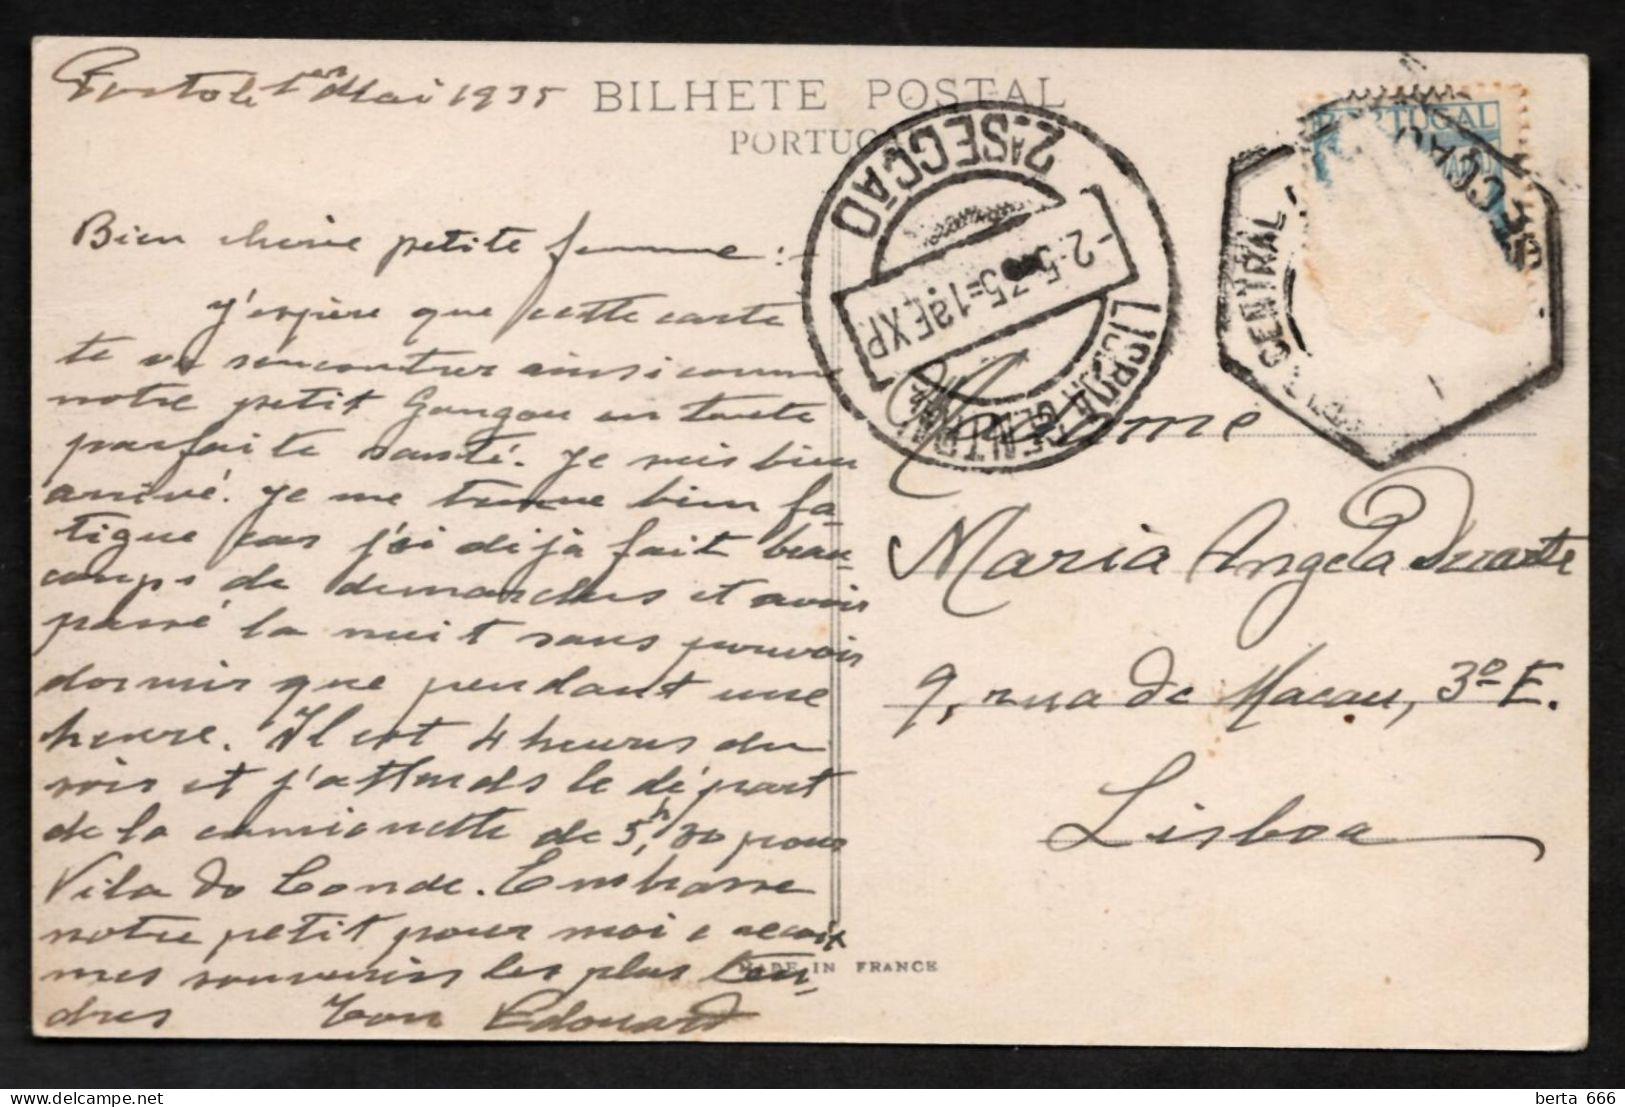 Porto le 1er Mai 1935
BILHETE POSTAL
PORTUG
Bien chérie petite femme :
J'espère que cette carte
te va rencontrer ainsi comme
notre petit en toute
parfaite santé. Je suis bien
arrivé. Je me trouve bien fa-
tigue car j'ai déjà fait beau-
coups de demarches et avoir
passé la nuit sans pouvoir
dormir que pendant une
heure. Il est 4 heures du
soir et j'attends le départ
de la camionette de 5h,30 pour
Vila do Conde. Embrasse
notre petit pour moi e reçoit
mes souvenirs les plus ten-
dres Ton Edouard
2ª SECÇÃO
-2.5.35=1ªEXP.
LISBOA CENTRAL
PORTUGAL
SECÇÃO
CENTRAL
Madame
Maria Angela Duarte
9, rua de Macau, 3º E.
Lisboa
MADE IN FRANCE
berta 666